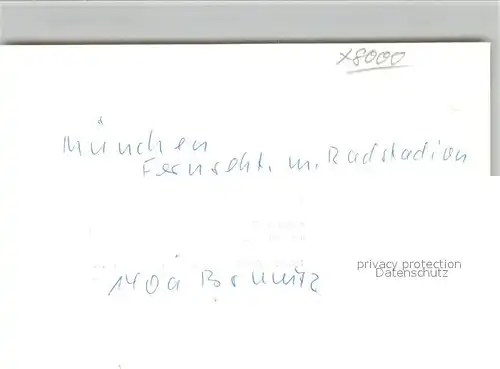 x8000
München
Fernseht. m. Radstadion
privacy protection
Datenschutz
140a